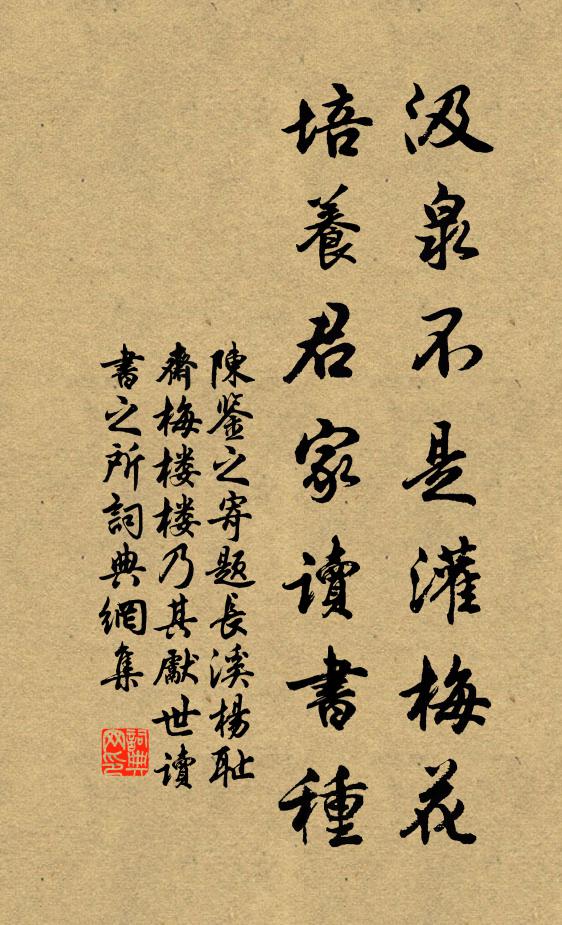 汲泉不是灌梅花
培養君家讀書種
陳鑒之寄題長溪楊耻
齋梅楼楼乃其獻世讀
書之所詞典網集
詞典网印